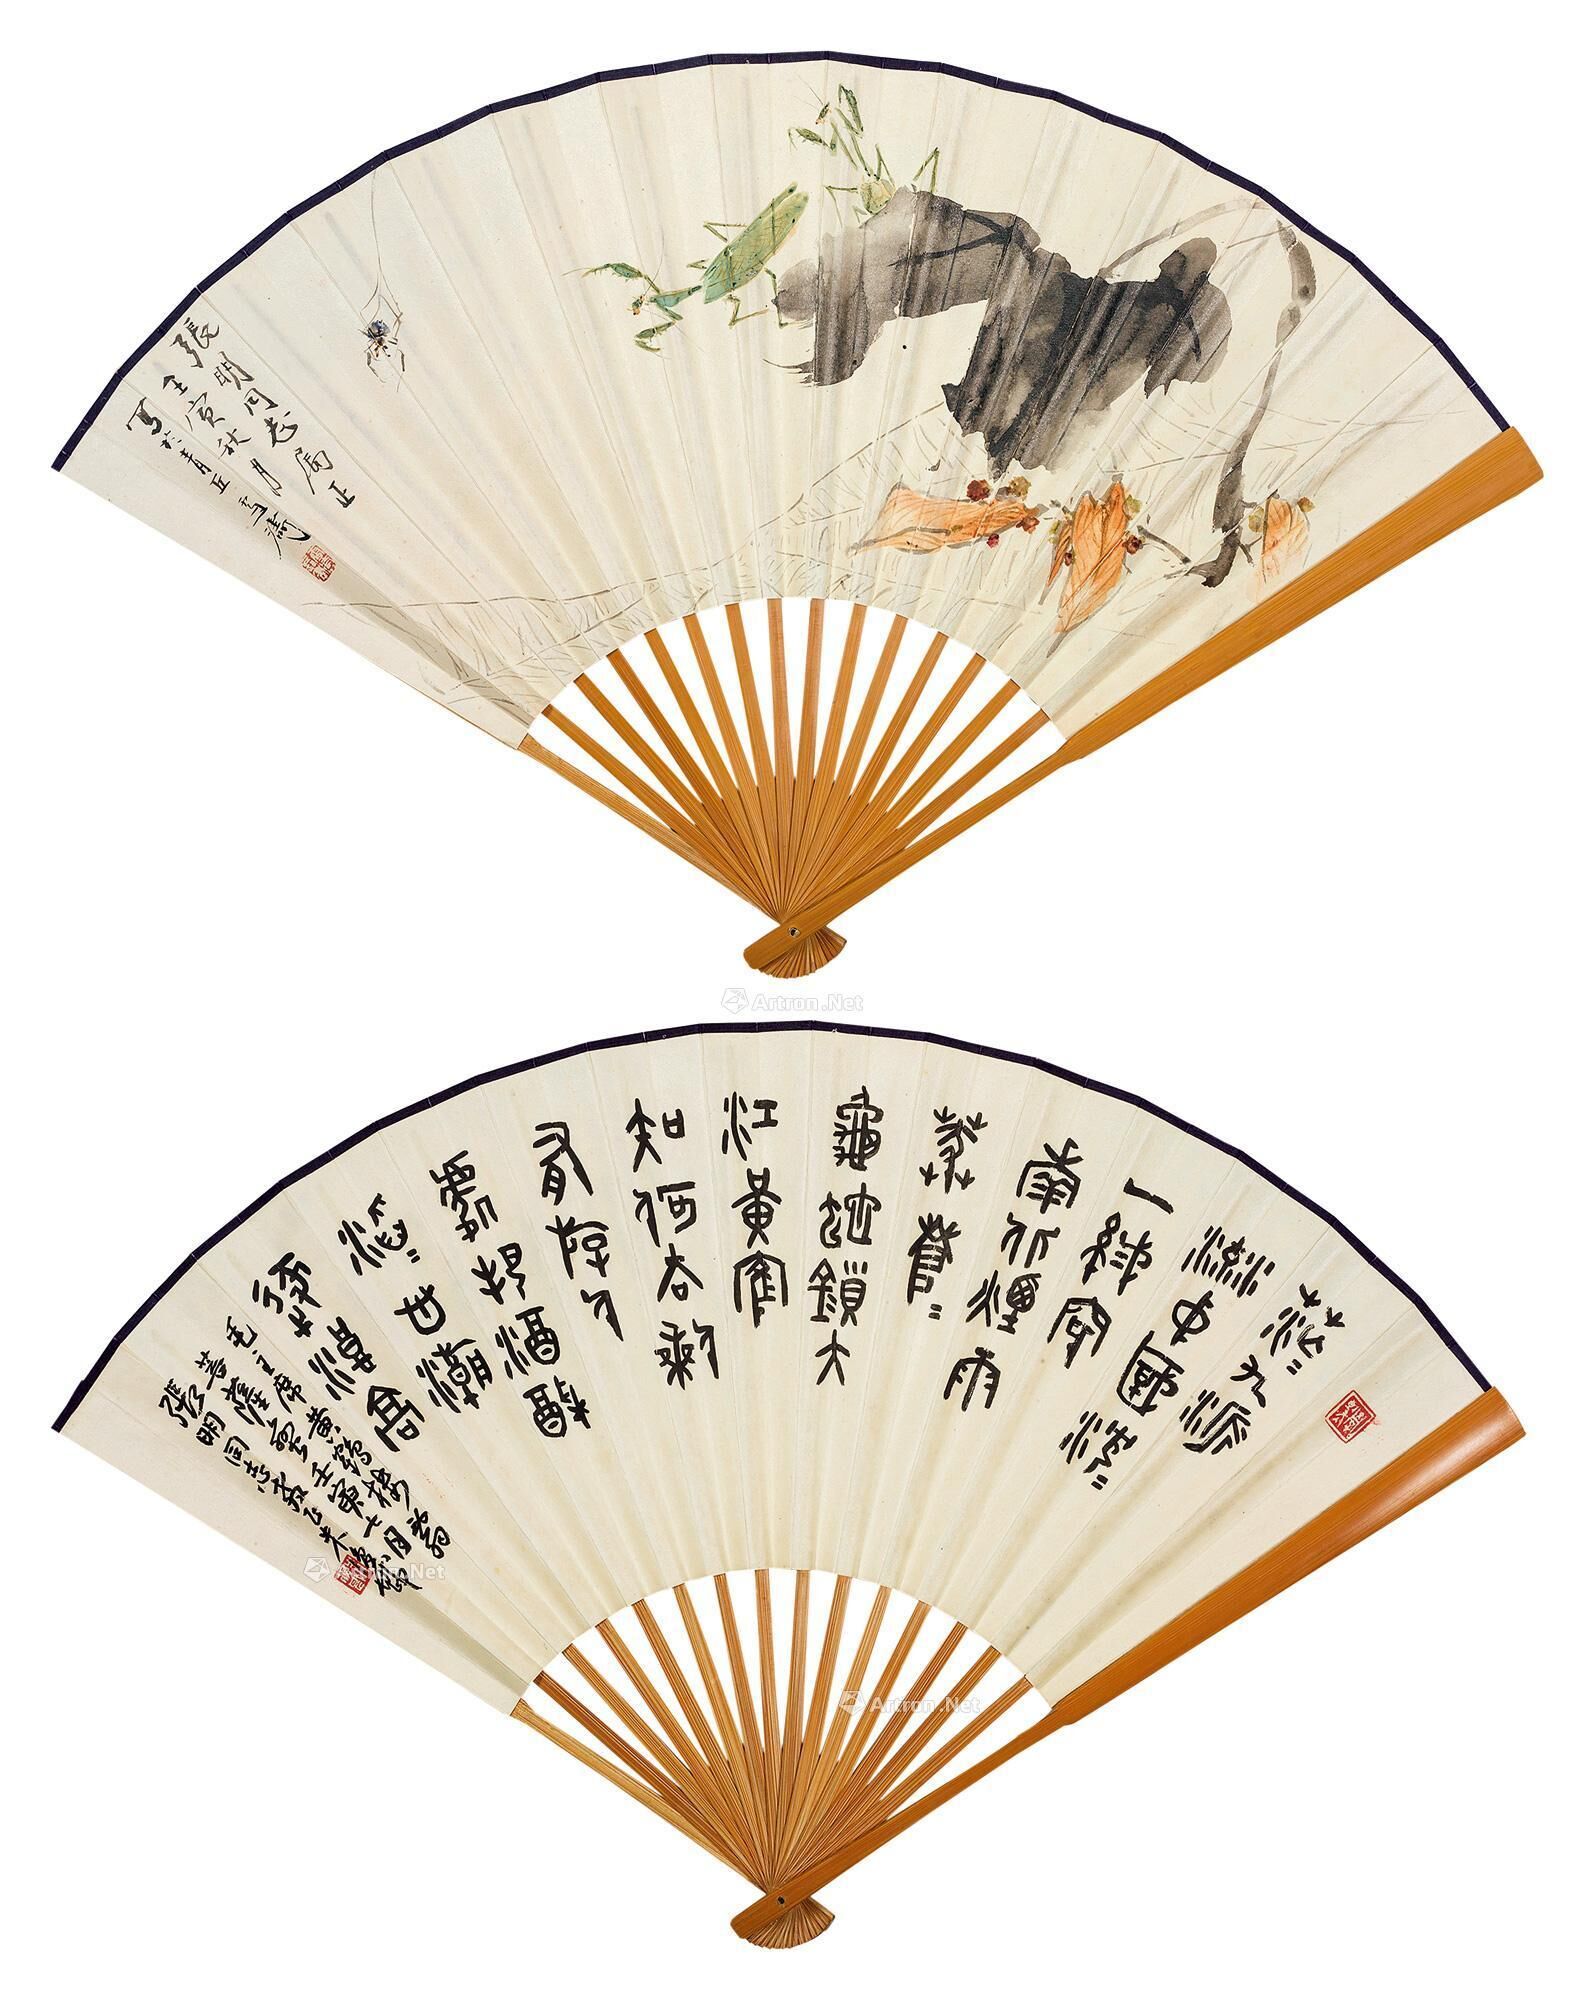 張明同志屬正
壬寅秋月
寫於青丘 雪濤
Artron.Net
茫茫九派
流中國沉沉
一線穿
南北煙雨
莽蒼蒼
龜蛇鎖大
江黃鶴
知何去剩
有游人
處把酒酹
滔滔心潮
逐浪高
毛主席黃鶴樓
菩薩蠻壬寅七月
張明同志教正朱復戡
Artron.Net
Artron.Net